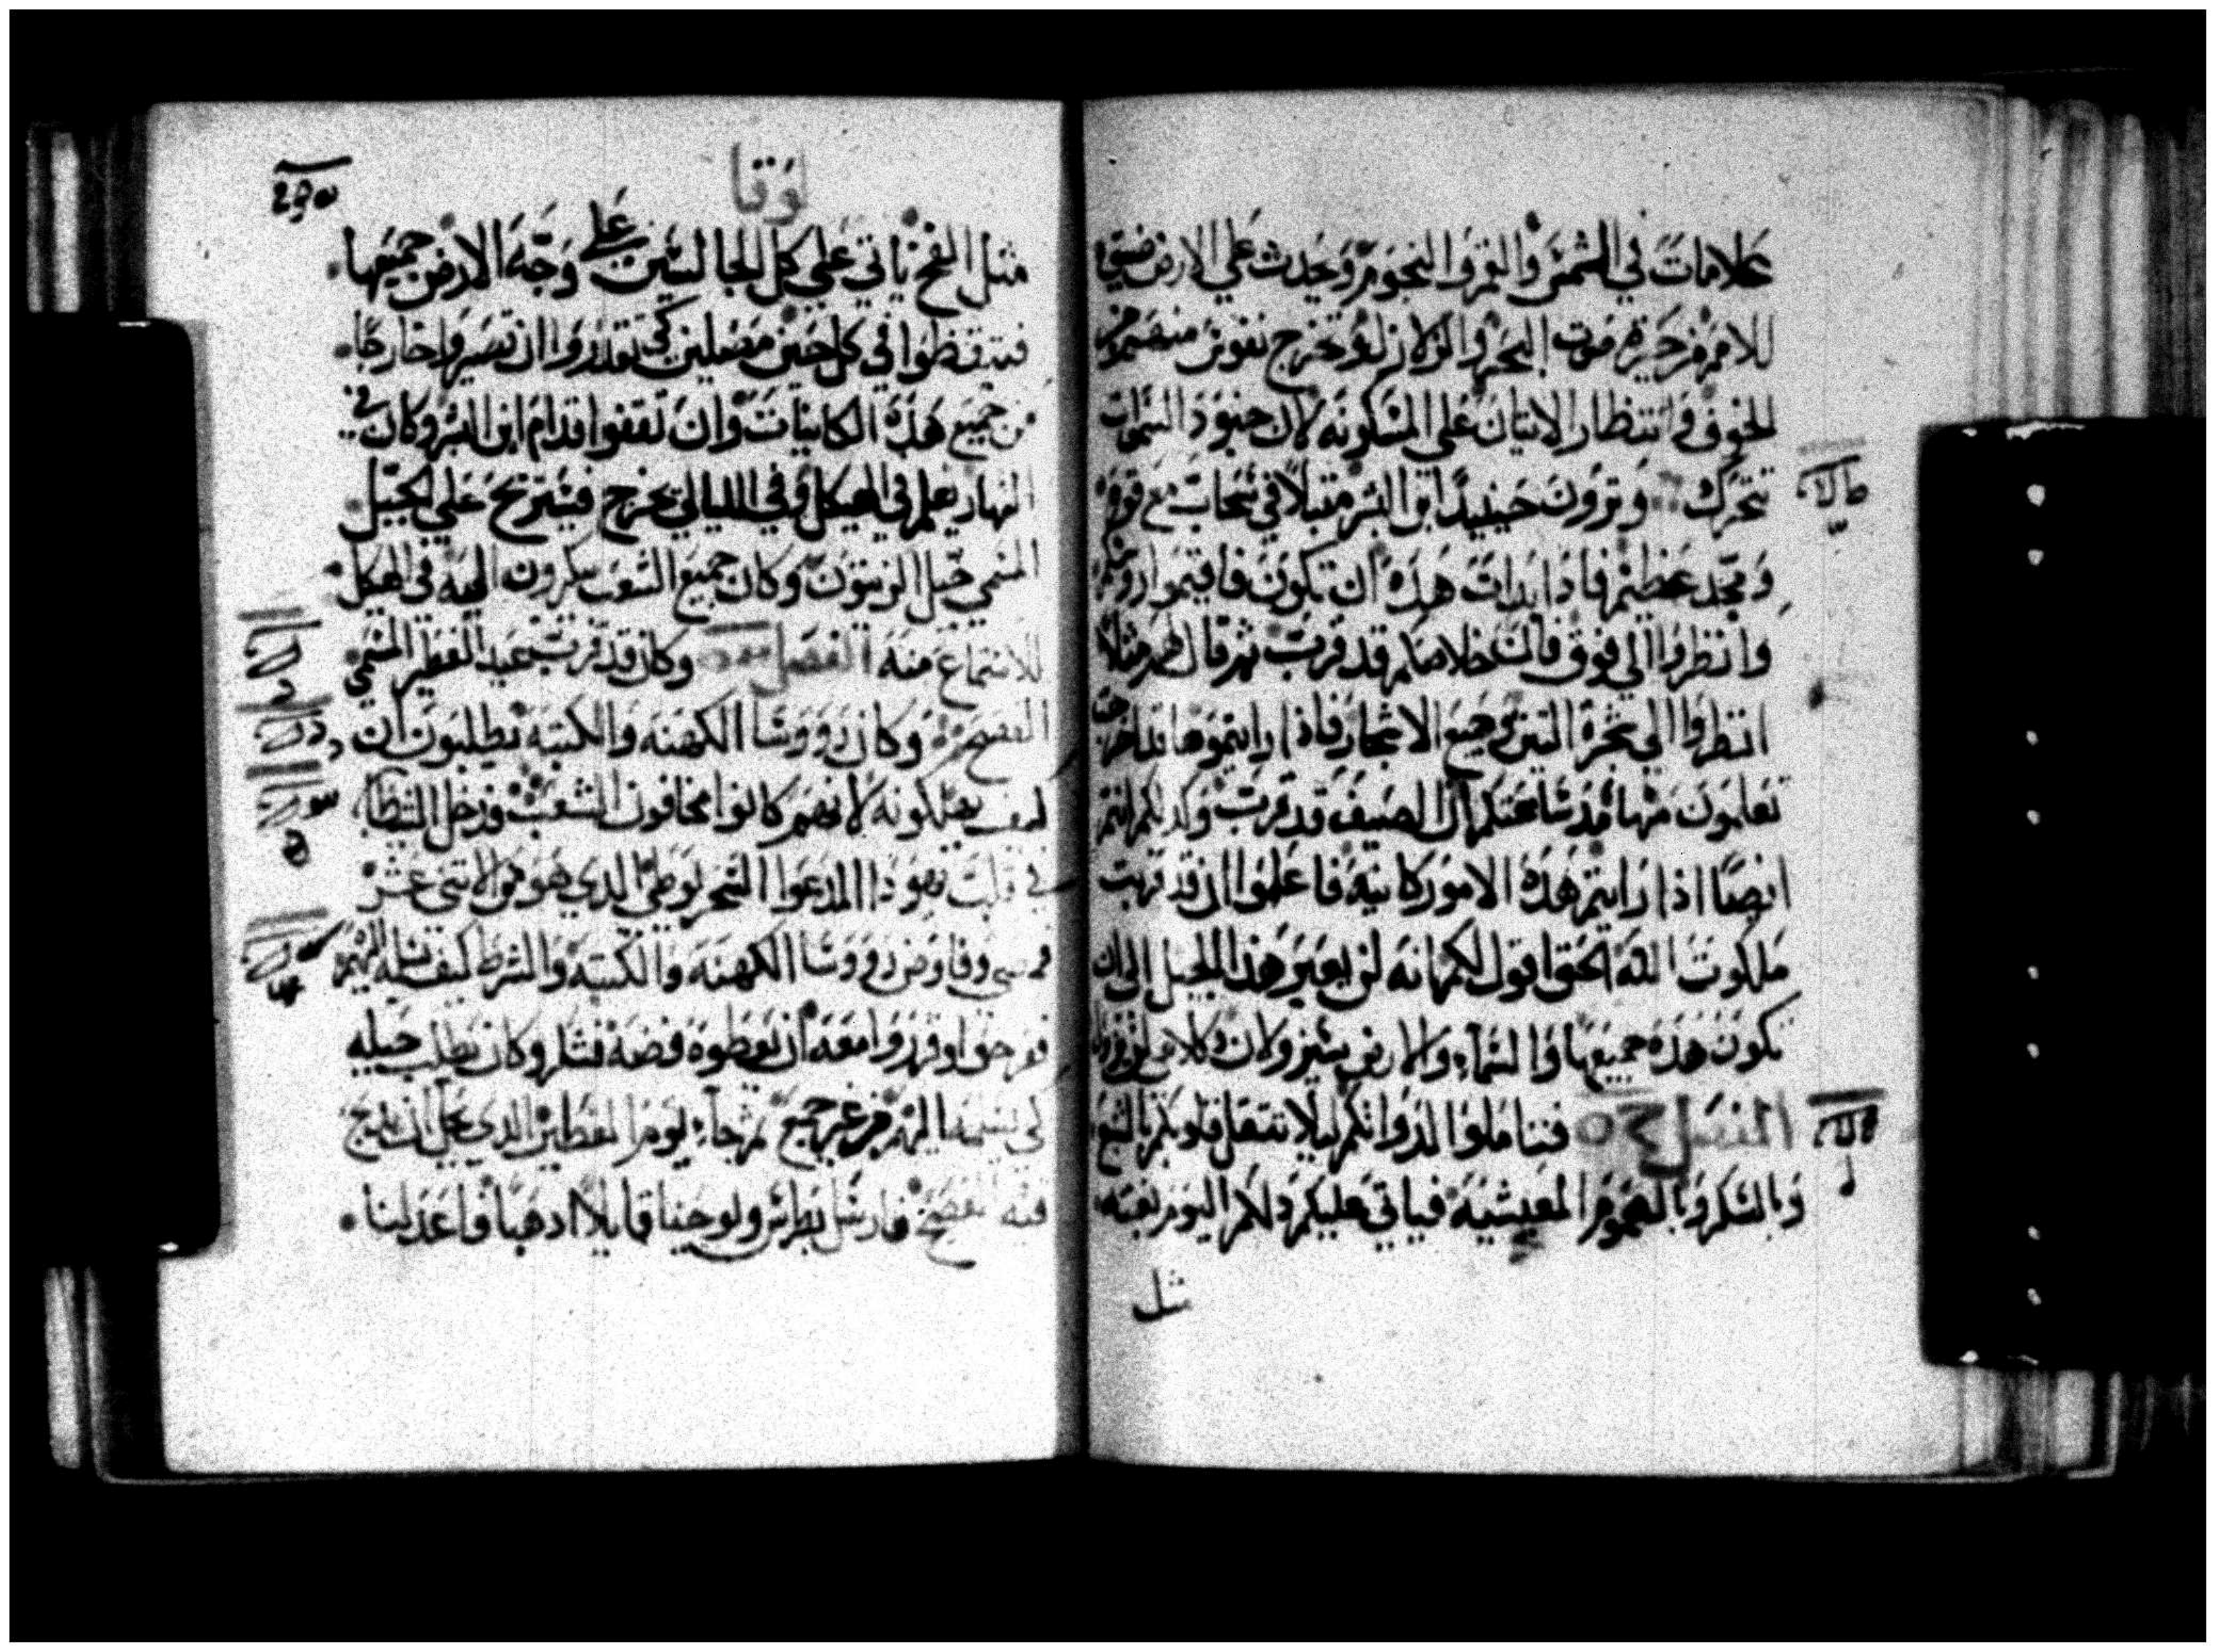 علامات في الشمس والقمر والنجوم ويحدث علي الارض ضيق
للامم من حيرة صوت البحر والزلازل وتخرج نفوس منهم من
الخوف وانتظار الاتيات علي المسكونه لان جنود السموات
تتحرك وترون حينيدا ابن البشر مقبلا في سحاب مع قوه
ومجد عظيم فاذا بدات هذه ان تكون فاقيموا روسكم
وانظروا الي فوق فان خلاصكم قد قرب ثم قال لهم مثلا
انظروا الي شجرة التين وجميع الاشجار فاذا رايتموها قد اخرجت
تعلمون منها قد شاعتكم ان الصيف قد قرب وكذلكم انتم
ايضا اذا رايتم هذه الامور كاينه فاعلموا ان قد قربت
ملكوت الله الحق اقول لكم انه لن يعبر هذا الجيل الي ان
تكون هذه جميعها والسماء والارض يتغيرون وكلامي لن يزول
الفصل فتاملوا لذواتكم ليلا تثقل قلوبكم بالشبع
وبالسكر وبالهموم المعيشيه فياتي عليكم دلكم اليوم بغته
مثل
لوقا
مثل الفخ ياتي علي كل الجالسين علي وجه الارض جميعها
فتيقظوا في كل حين مصلين كي تقدروا ان تصيروا خارجا
من جميع هذه الكاينات وان تقفوا قدام ابن البشر وكان في
النهار يعلم في الهيكل وفي الليالي يخرج فيستريح علي الجبل
المسمي جبل الزيتون وكان جميع الشعب يبكرون اليه في الهيكل
للاستماع منه الفصل وكان قد قرب عيد الفطير المسمي
الفصح وكان رووسا الكهنه والكتبه يطلبون ان
كيف يهلكونه لانهم كانوا يخافون الشعب فدخل الشيطان
في قلب يهودا المدعوا السخريوطي الدي هو من الاتني عشر
فمضي وفاوض رووسا الكهنه والكتبه والشرط كيف يسلمه اليهم
ففرحوا وقرروا معه ان يعطوه فضه فشكر وكان يطلب حيله
لكي يسلمه اليهم من غير جمع ثم جاء يوم الفطير الدي يجب ان يدبح
فيه الفصح فارسل بطرس ويوحنا قايلا ادهبا فاعدا لنا